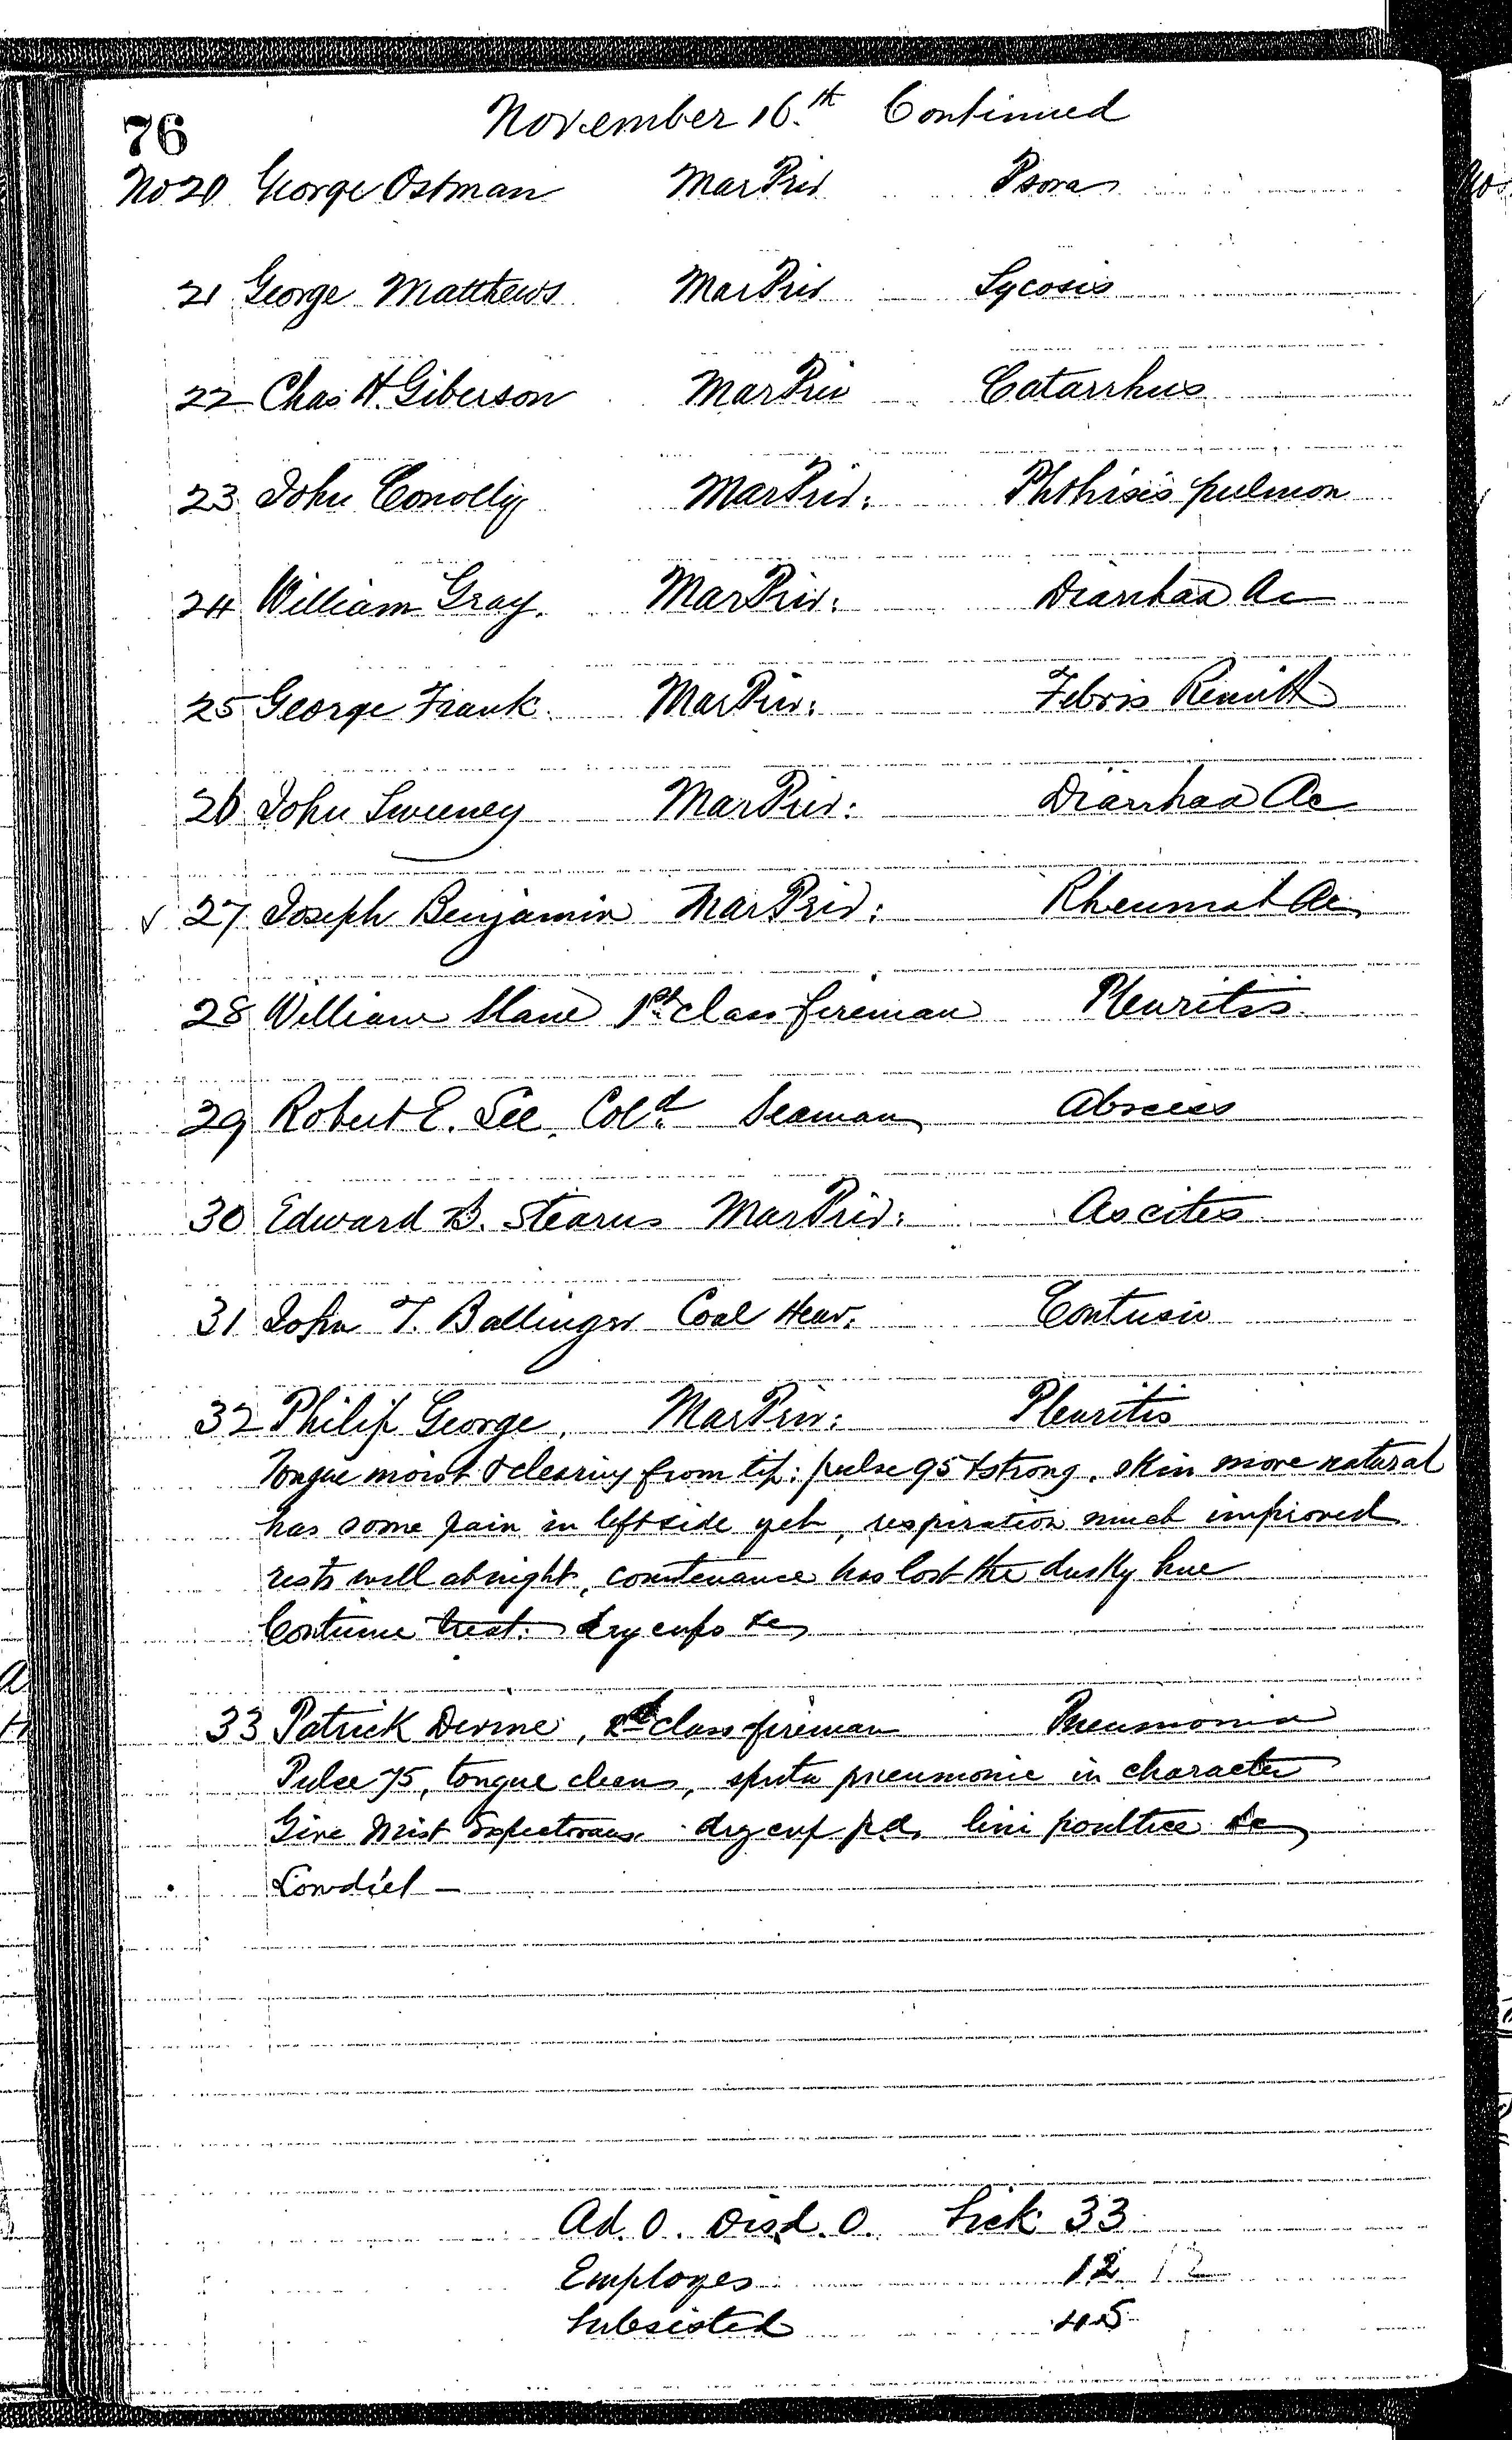 76
November 16.th Continued
No 20 George Ostman Mar Priv Psora
21 George Matthews Mar Priv Sycosis
22 Chas H. Giberson Mar Priv Catarrhus
23 John Conolly Mar Priv: Phthisis pulmon
24 William Gray. Mar Priv: Diarrhœa Ac
25 George Frank. Mar Priv: Febris Remitt
26 John Sweeney Mar Priv: Diarrhœa Ac
√ 27 Joseph Benjamin Mar Priv: Rheumat Ac
28 William Slane 1st class fireman Pleuritis
29 Robert E. Lee, Cold. Seaman Abscess
30 Edward B. Stearns Mar Priv: Ascites
31 John T. Ballinger Coal Heav: Contusio
32 Philip George. Mar Priv: Pleuritis
Tongue moist & clearing from tip: pulse 95 & strong. skin more natural
has some pain in left side yet, respiration much improved
rests well at night, countenance has lost the dusky hue
Continue treat: dry cups &c
33 Patrick Devine, 2d class fireman Pneumonia
Pulse 75, tongue clean, sputa pneumonic in character
Give Mist Expectorans. dry cup p.d. lini poultice &c
Low diet —
Ad. 0. Disd. 0. Sick 33
Employes 12 12
Subsisted 45